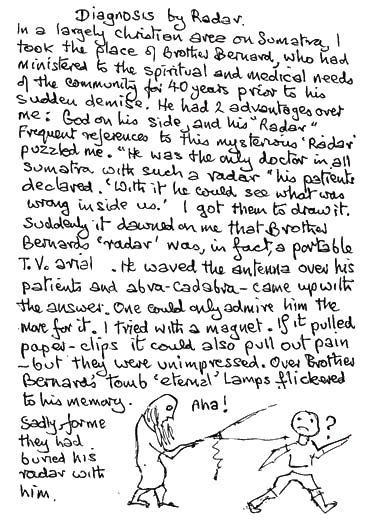 Diagnosis by Radar.
In a largely christian area on Sumatra, I
took the place of Brother Bernard, who had
ministered to the spiritual and medical needs
of the community for 40 years prior to his
sudden demise. He had 2 advantages over
me: God on his side, and his "Radar"
Frequent references to this mysterious 'Radar'
puzzled me. "He was the only doctor in all
Sumatra with such a radar" his patients
declared. 'With it he could see what was
wrong inside us.' I got them to draw it.
Suddenly it dawned on me that Brother
Bernards 'radar' was, in fact, a portable
T.V. arial. He waved the antenna over his
patients and abra-cadabra - came up with
the answer. One could only admire him the
more for it. I tried with a magnet. If it pulled
paper-clips it could also pull out pain
- but they were unimpressed. Over Brother
Bernard's tomb 'eternal' lamps flickered
to his memory.
Sadly, for me
they had
buried his
radar with
him.
Aha!
?